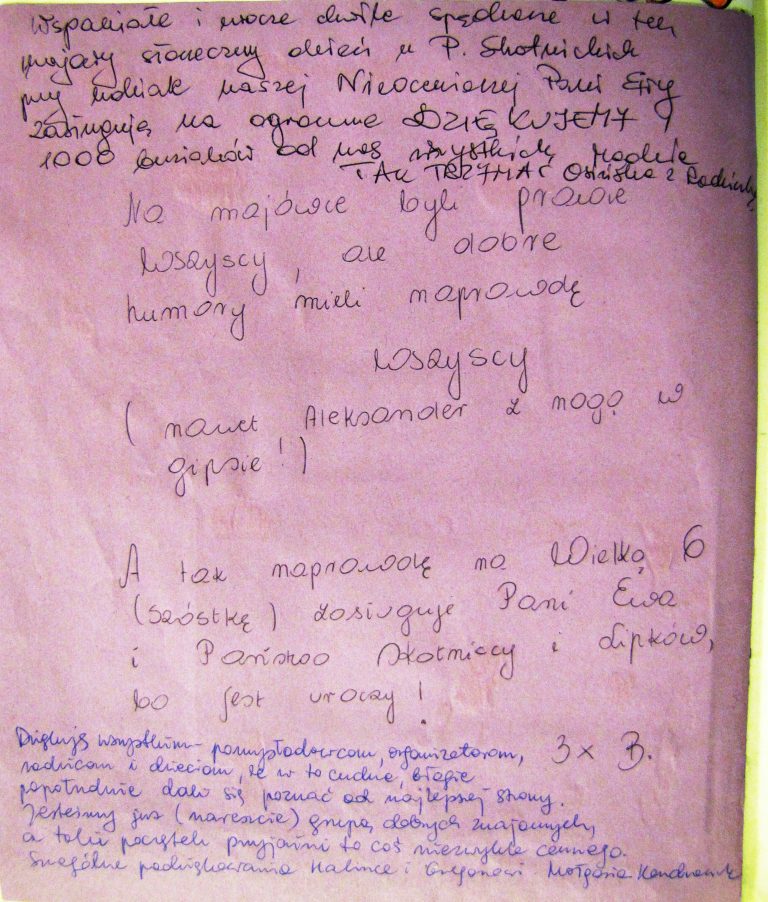 Wspaniałe i urocze chwile spędzone w ten
majowy słoneczny dzień u P. Skotnickich
przy udziale naszej Nieocenionej Pani Ewy
zasługują na ogromne DZIĘKUJEMY!
1000 buziaków od nas wszystkich
TAK TRZYMAĆ
Na majówce byli prawie
wszyscy, ale dobre
humory mieli naprawdę
wszyscy
(nawet Aleksander z nogą w
gipsie!)
A tak naprawdę na Wielką 6
(szóstkę) zasługuje Pani Ewa
i Państwo Skotniccy i Lipków,
bo jest uroczy!
3 x B.
Dziękuję wszystkim pomysłodawcom, organizatorom,
rodzicom i dzieciom, że w to cudne, błogie
popołudnie dali się poznać od najlepszej strony.
Jesteśmy już (nareszcie) grupą dobrych znajomych,
a takie początki przyjaźni to coś niezwykle cennego.
Szczególne podziękowania Halince i Grzegorzowi Małgosia